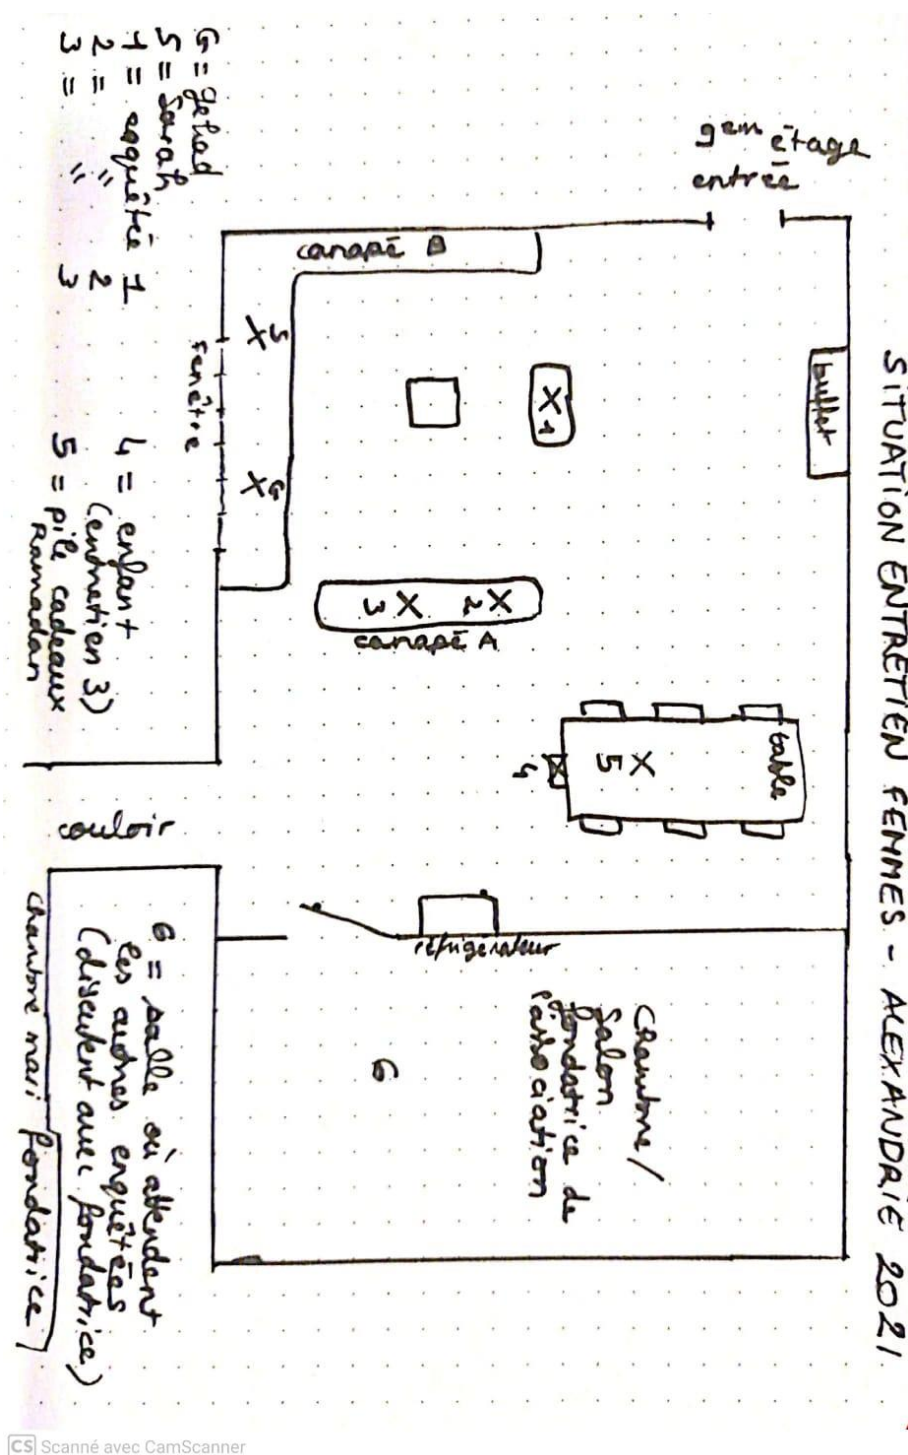 SITUATION ENTRETIEN FEMMES - ALEXANDRIE 2021
9em étage
entrée
buffet
canapé B
S
X
G
X
fenêtre
X 1
2 X
3 X
canapé A
table
X
5
4
réfrigérateur
couloir
Chambre /
Salon
fondatrice de
l'association
6
G = Jehad
S = Sarah
1 = enquêtée 1
2 = " 2
3 = " 3
4 = enfant
(entretien 3)
5 = pile cadeaux
Ramadan
6 = salle où attendent
les autres enquêtées
(discutent avec fondatrice)
Chambre mari fondatrice
CS Scanné avec CamScanner